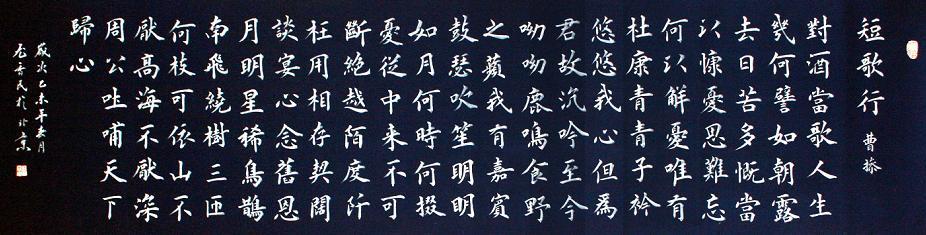 短歌行 曹操
對酒當歌人生
幾何譬如朝露
去日苦多慨當
以慷憂思難忘
何以解憂唯有
杜康青青子衿
悠悠我心但為
君故沉吟至今
呦呦鹿鳴食野
之蘋我有嘉賓
鼓瑟吹笙明明
如月何時何掇
憂從中来不可
斷絕越陌度阡
枉用相存契闊
談宴心念舊恩
月明星稀烏鵲
南飛繞樹三匝
何枝可依山不
厭高海不厭深
周公吐哺天下
歸心
歲次乙未年春月
香民於北京